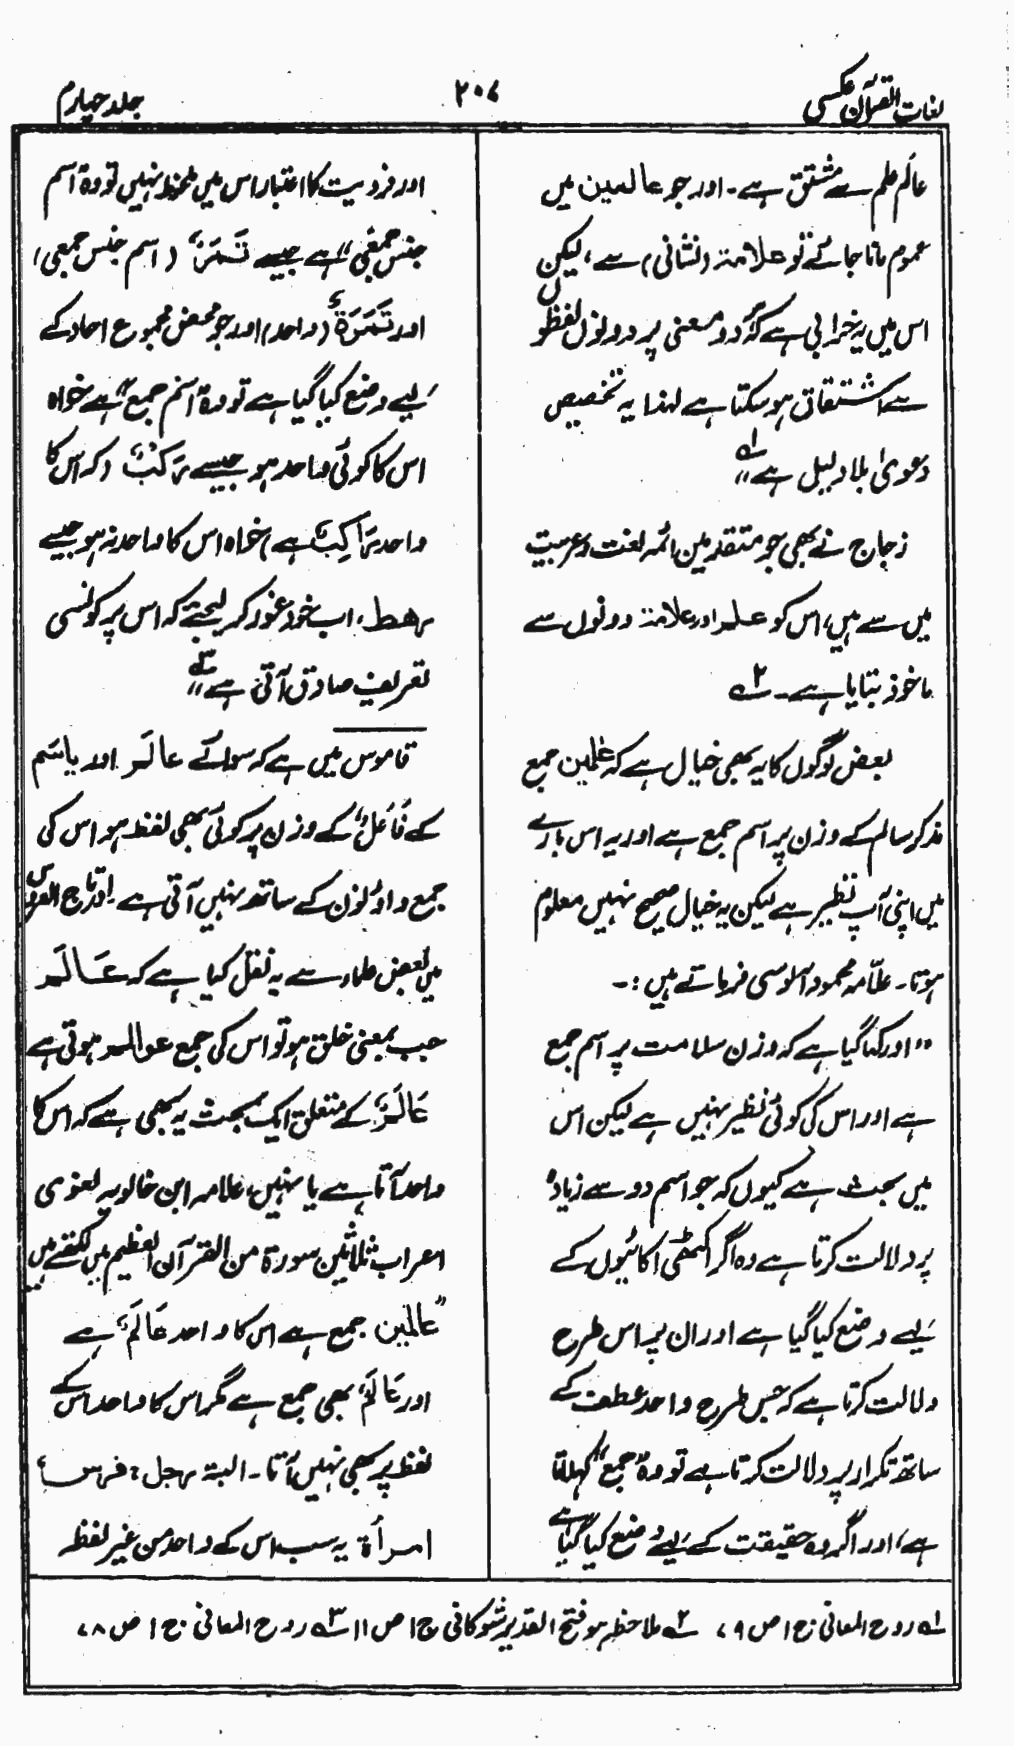 لغات القرآن عکسی
۲۰۷
جلد چہارم
عالَم علم سے مشتق ہے۔ اور جو عالمین میں
عموم مانا جائے تو علامۃ (نشانی) سے، لیکن
اس میں یہ خرابی ہے کہ دو معنی پر دونوں لفظوں
سے اشتقاق ہو سکتا ہے لہذا یہ تخصیص
دعویٰ بلا دلیل ہے" ۱؎
زجاج نے بھی جو متقدمین ائمہ لغت و عربیت
میں سے ہیں، اس کو علم اور علامۃ دونوں سے
ماخوذ بتایا ہے۔ ۲؎
بعض لوگوں کا یہ بھی خیال ہے کہ عٰلمین جمع
مذکر سالم کے وزن پر اسم جمع ہے اور یہ اس بارے
میں اپنی آپ نظیر ہے لیکن یہ خیال صحیح نہیں معلوم
ہوتا۔ علّامہ محمود آلوسی فرماتے ہیں :۔
"اور کہا گیا ہے کہ وزن سلامت پر اسم جمع
ہے اور اس کی کوئی نظیر نہیں ہے لیکن اس
میں بحث ہے کیوں کہ جو اسم دو سے زیادہ
پر دلالت کرتا ہے وہ اگر اکھٹی اکائیوں کے
لیے وضع کیا گیا ہے اور ان پر اس طرح
دلالت کرتا ہے کہ جس طرح واحد عطف کے
ساتھ تکرار پر دلالت کرتا ہے تو وہ "جمع" کہلاتا
ہے، اور اگر وہ حقیقت کے لیے وضع کیا گیا ہے
اور فردیت کا اعتبار اس میں ملحوظ نہیں تو وہ "اسم
جنس جمعی" ہے جیسے تَمَرٌ (اسم جنس جمعی)
اور تَمَرَةٌ (واحد) اور جو محض مجموع احاد کے
لیے وضع کیا گیا ہے تو وہ "اسم جمع" ہے خواہ
اس کا کوئی واحد ہو جیسے رَکْبٌ (کہ اس کا
واحد رَاکِبٌ ہے) خواہ اس کا واحد نہ ہو جیسے
رھط، اب خود غور کر لیجئے کہ اس پر کونسی
تعریف صادق آتی ہے" ۳؎
قاموس میں ہے کہ سوائے عالَم اور یاسَم
کے فَاعَلٌ کے وزن پر کوئی بھی لفظ ہو اس کی
جمع واؤ نون کے ساتھ نہیں آتی ہے اور تاج العروس
میں بعض علماء سے یہ نقل کیا ہے کہ عَالَم
جب بمعنی خلق ہو تو اس کی جمع عوالم ہوتی ہے
عَالَمٌ کے متعلق ایک بحث یہ بھی ہے کہ اس کا
واحد آتا ہے یا نہیں، علامہ ابن خالویہ لغوی
اعراب ثلاثین سورۃ من القرآن العظیم میں لکھتے ہیں
"عالمین جمع ہے اس کا واحد عَالَمٌ ہے
اور عَالَمٌ بھی جمع ہے مگر اس کا واحد اس کے
لفظ پر بھی نہیں آتا۔ البتہ رجل، فرس،
امرأۃ یہ سب اس کے واحد من غیر لفظہ
۱؎ روح المعانی ج ۱ ص ۷۹ ۲؎ ملاحظہ ہو فتح القدیر شوکانی ج ۱ ص ۱۱ ۳؎ روح المعانی ج ۱ ص ۷۸